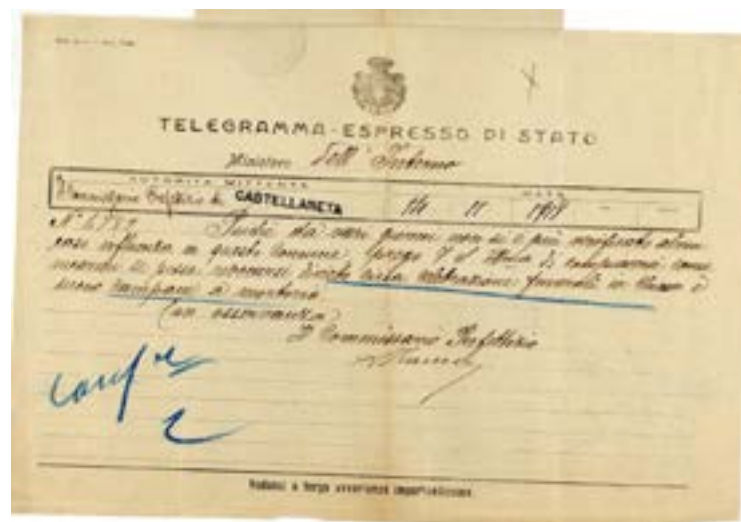 TELEGRAMMA-ESPRESSO DI STATO
Ministero Dell' Interno
AUTORITÀ MITTENTE DATA
Commissario Prefettizio di CASTELLANETA 14 11 1918
N° Poichè da vari giorni non si è più verificato alcun
caso influenza in questo Comune, prego V. S. Ill.ma di compiacersi
se possa revocarsi divieto circa celebrazione funerali in Chiesa e
suono campane a mortorio
(con osservanza)
Il Commissario Prefettizio
Vedansi a tergo avvertenze importantissime